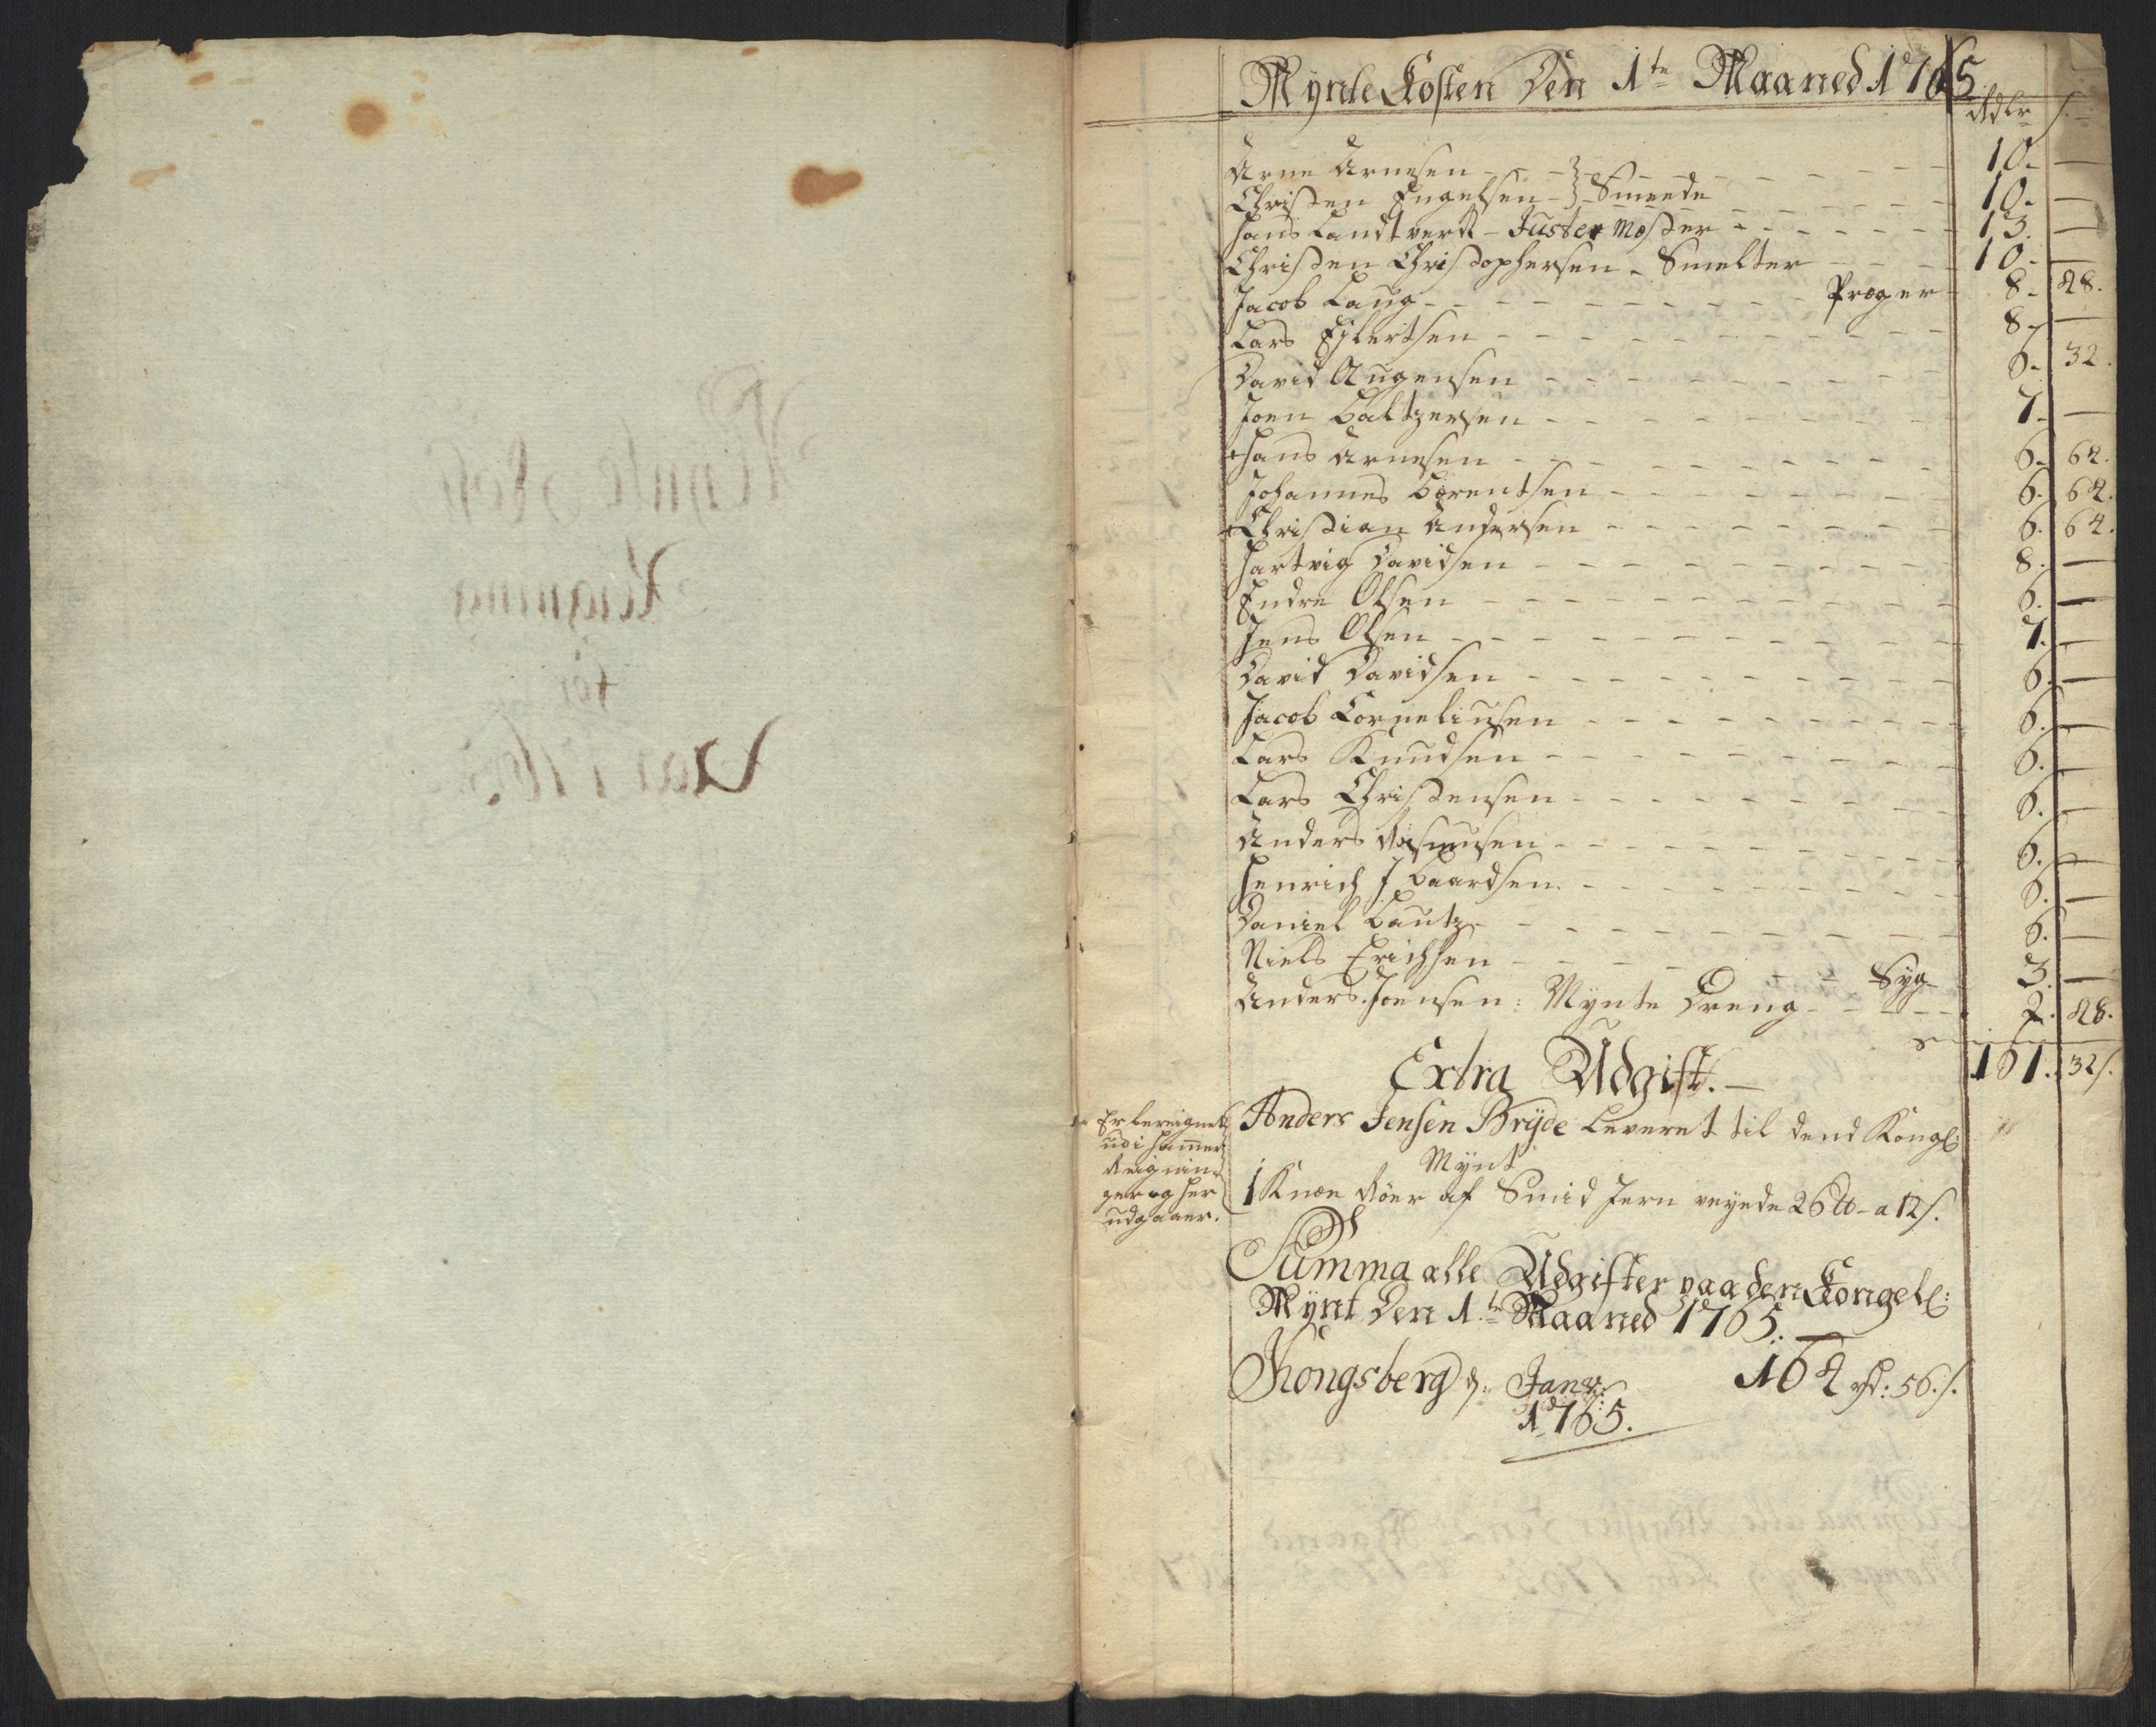 Mynte Kosten Den 1te Maaned 1765
Rdlr s.
Arne Arnesen 10. —
Christen Engelsen } Smeede 10. —
Hans Landtverk - Juster Mester 13. —
Christen Christophersen - Smelter 10. —
Jacob Laug Præger 8. 48.
Lars Eylertsen 8. —
David Augensen 6. 32.
Joen Baltzersen 7. —
Hans Arnesen 6. 64.
Johannes Berentsen 6. 64.
Christian Andersen 6. 64.
Hartvig Davidsen 8. —
Endre Olsen 6. —
Jens Olsen 7. —
David Davidsen 6. —
Jacob Corneliusen 6. —
Lars Knudsen 6. —
Lars Christensen 6. —
Anders Rasmusen 6. —
Henrich J Baardsen 6. —
Daniel Bautz 6. —
Niels Erichsen Syg 3. —
Anders Joensen: Mynte Dreng 2. 48.
161. 32 s.
Extra Udgift. —
Anders Jensen Bryde Leveret til dend Kongl:
Mynt
1 Knee Röer af Smid Jern veyede 26 ℔ - a 12 s.
Er bereignet
udi Hammer
Reignin
ger og her
udgaaer.
Summa alle Udgifter paa den Kongel:
Mynt Den 1te Maaned 1765. —
164 rd: 56 s.
Kongsberg d: Janv:
1765.